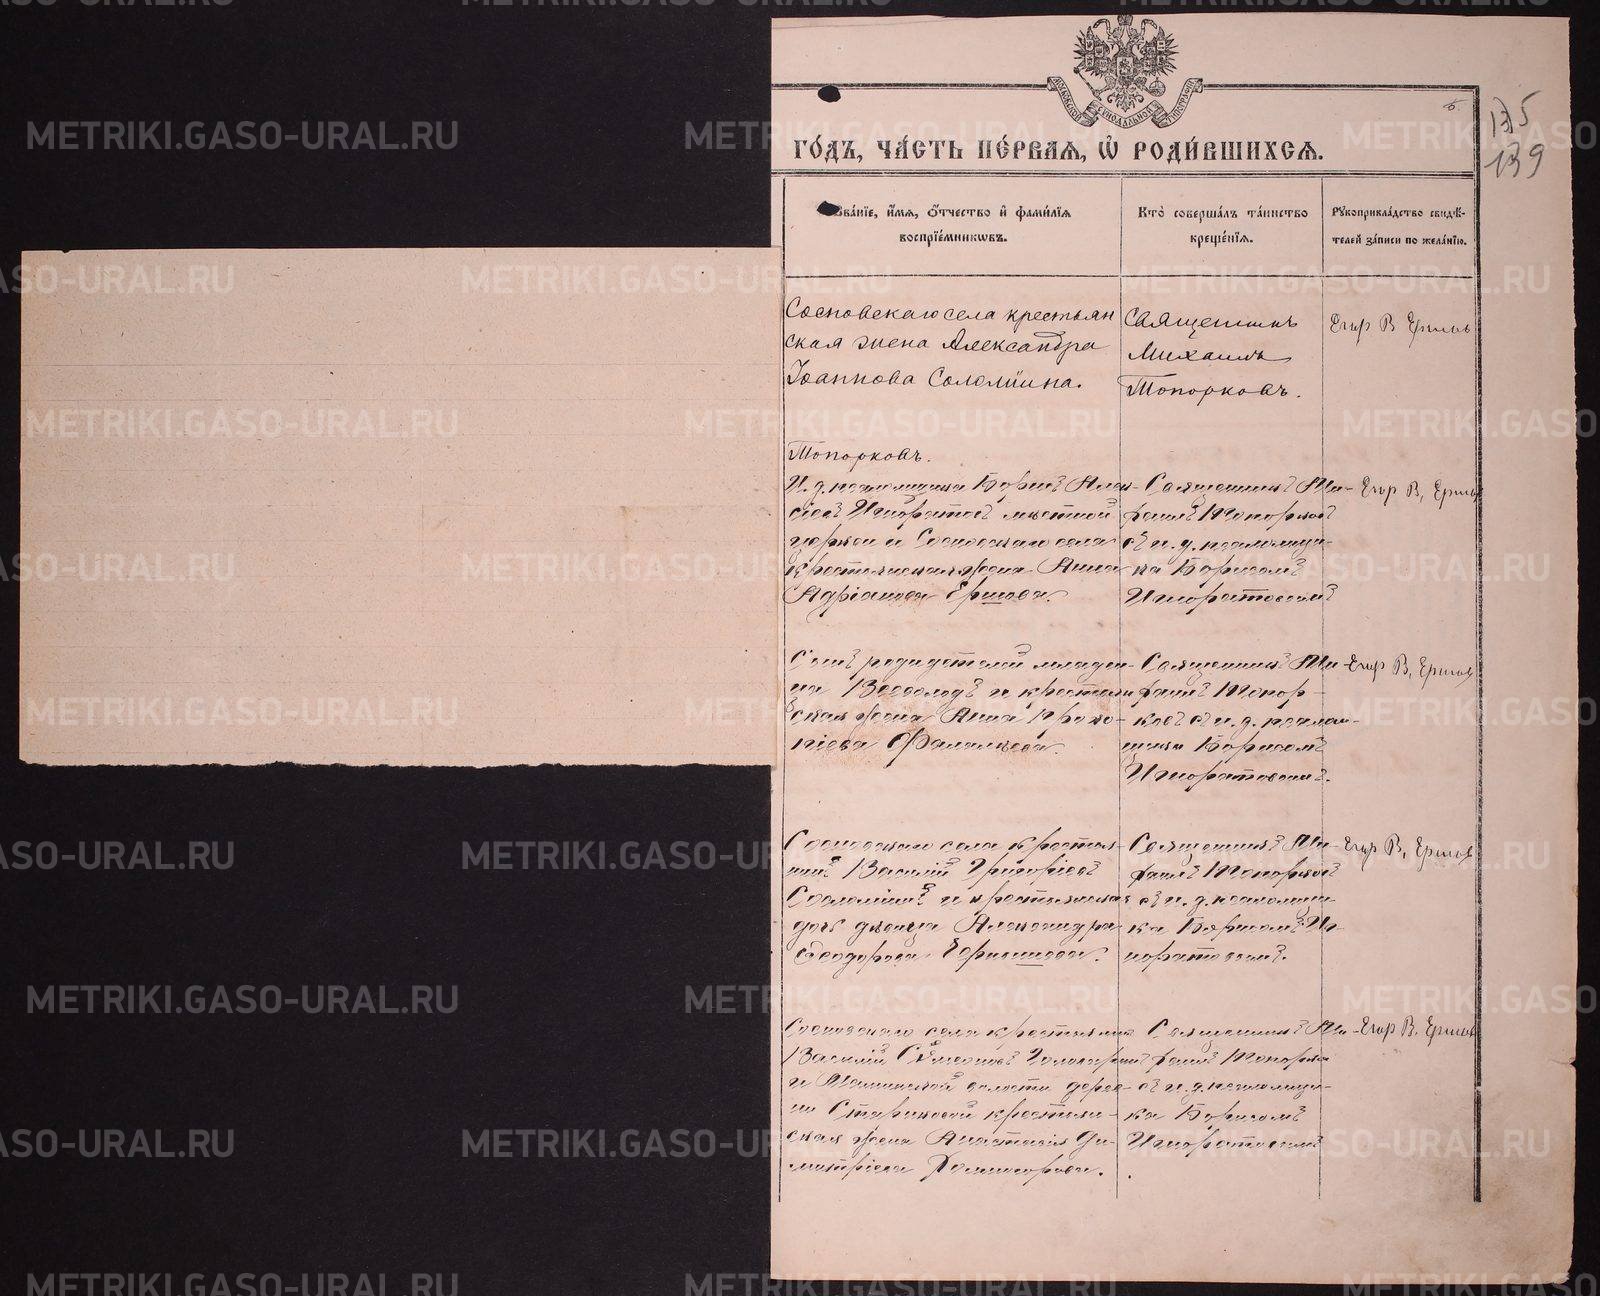 МОСКОВСКОЙ СѴНОДАЛЬНОЙ ТИПОГРАФІИ
135
139
ГО́ДЪ, ЧА́СТЬ ПЕ́РВАЯ, Ѡ҆ РОДИ́ВШИХСЯ.
Зва́нїе, и҆́мя, ѻ҆́тчество и҆ фами́лїя
воспрїе́мникѡвъ.
Кто̀ соверша́лъ та́инство
креще́нїя.
Рꙋкоприкла́дство свидѣ́-
телей за́писи по жела́нїю.
Сосновскаго села крестьян
ская жена Александра
Іоаннова Соломѣина.
Священникъ
Михаилъ
Топорковъ.
Егор В Ершов
Топорковъ.
И. д. псаломщика Борисъ Алек-
сѣевъ Игноратовъ мѣстной
церкви и Сосновскаго села
крестьянская жена Анна
Адріанова Ершова.
Священникъ Ми-
хаилъ Топорковъ
съ и. д. псаломщи-
ка Борисомъ
Егор В, Ершов
Сынъ родителей младен-
ца Всеволодъ и крестьян
ская жена Анна Проко-
піева Фалалѣева.
Священникъ Ми-
хаилъ Топор-
ковъ съ и. д. псалом-
щика Борисомъ
Егор В, Ершов
Сосновскаго села крестья-
нинъ Василій Григоріевъ
и крестьянская
дочь дѣвица Александра
Ѳеодорова
Священникъ Ми-
хаилъ Топорковъ
съ и. д. псаломщи
ка Борисомъ
Егор В, Ершов
Сосновскаго села крестьянинъ
Василій Сѵмеоновъ
и волости дерев-
ни Стариковой крестьян-
ская жена Анастасія Ди-
митріева
Священникъ Ми-
хаилъ Топорков
съ и. д. псаломщи-
ка Борисомъ
Егор В. Ершов
METRIKI.GASO-URAL.RU